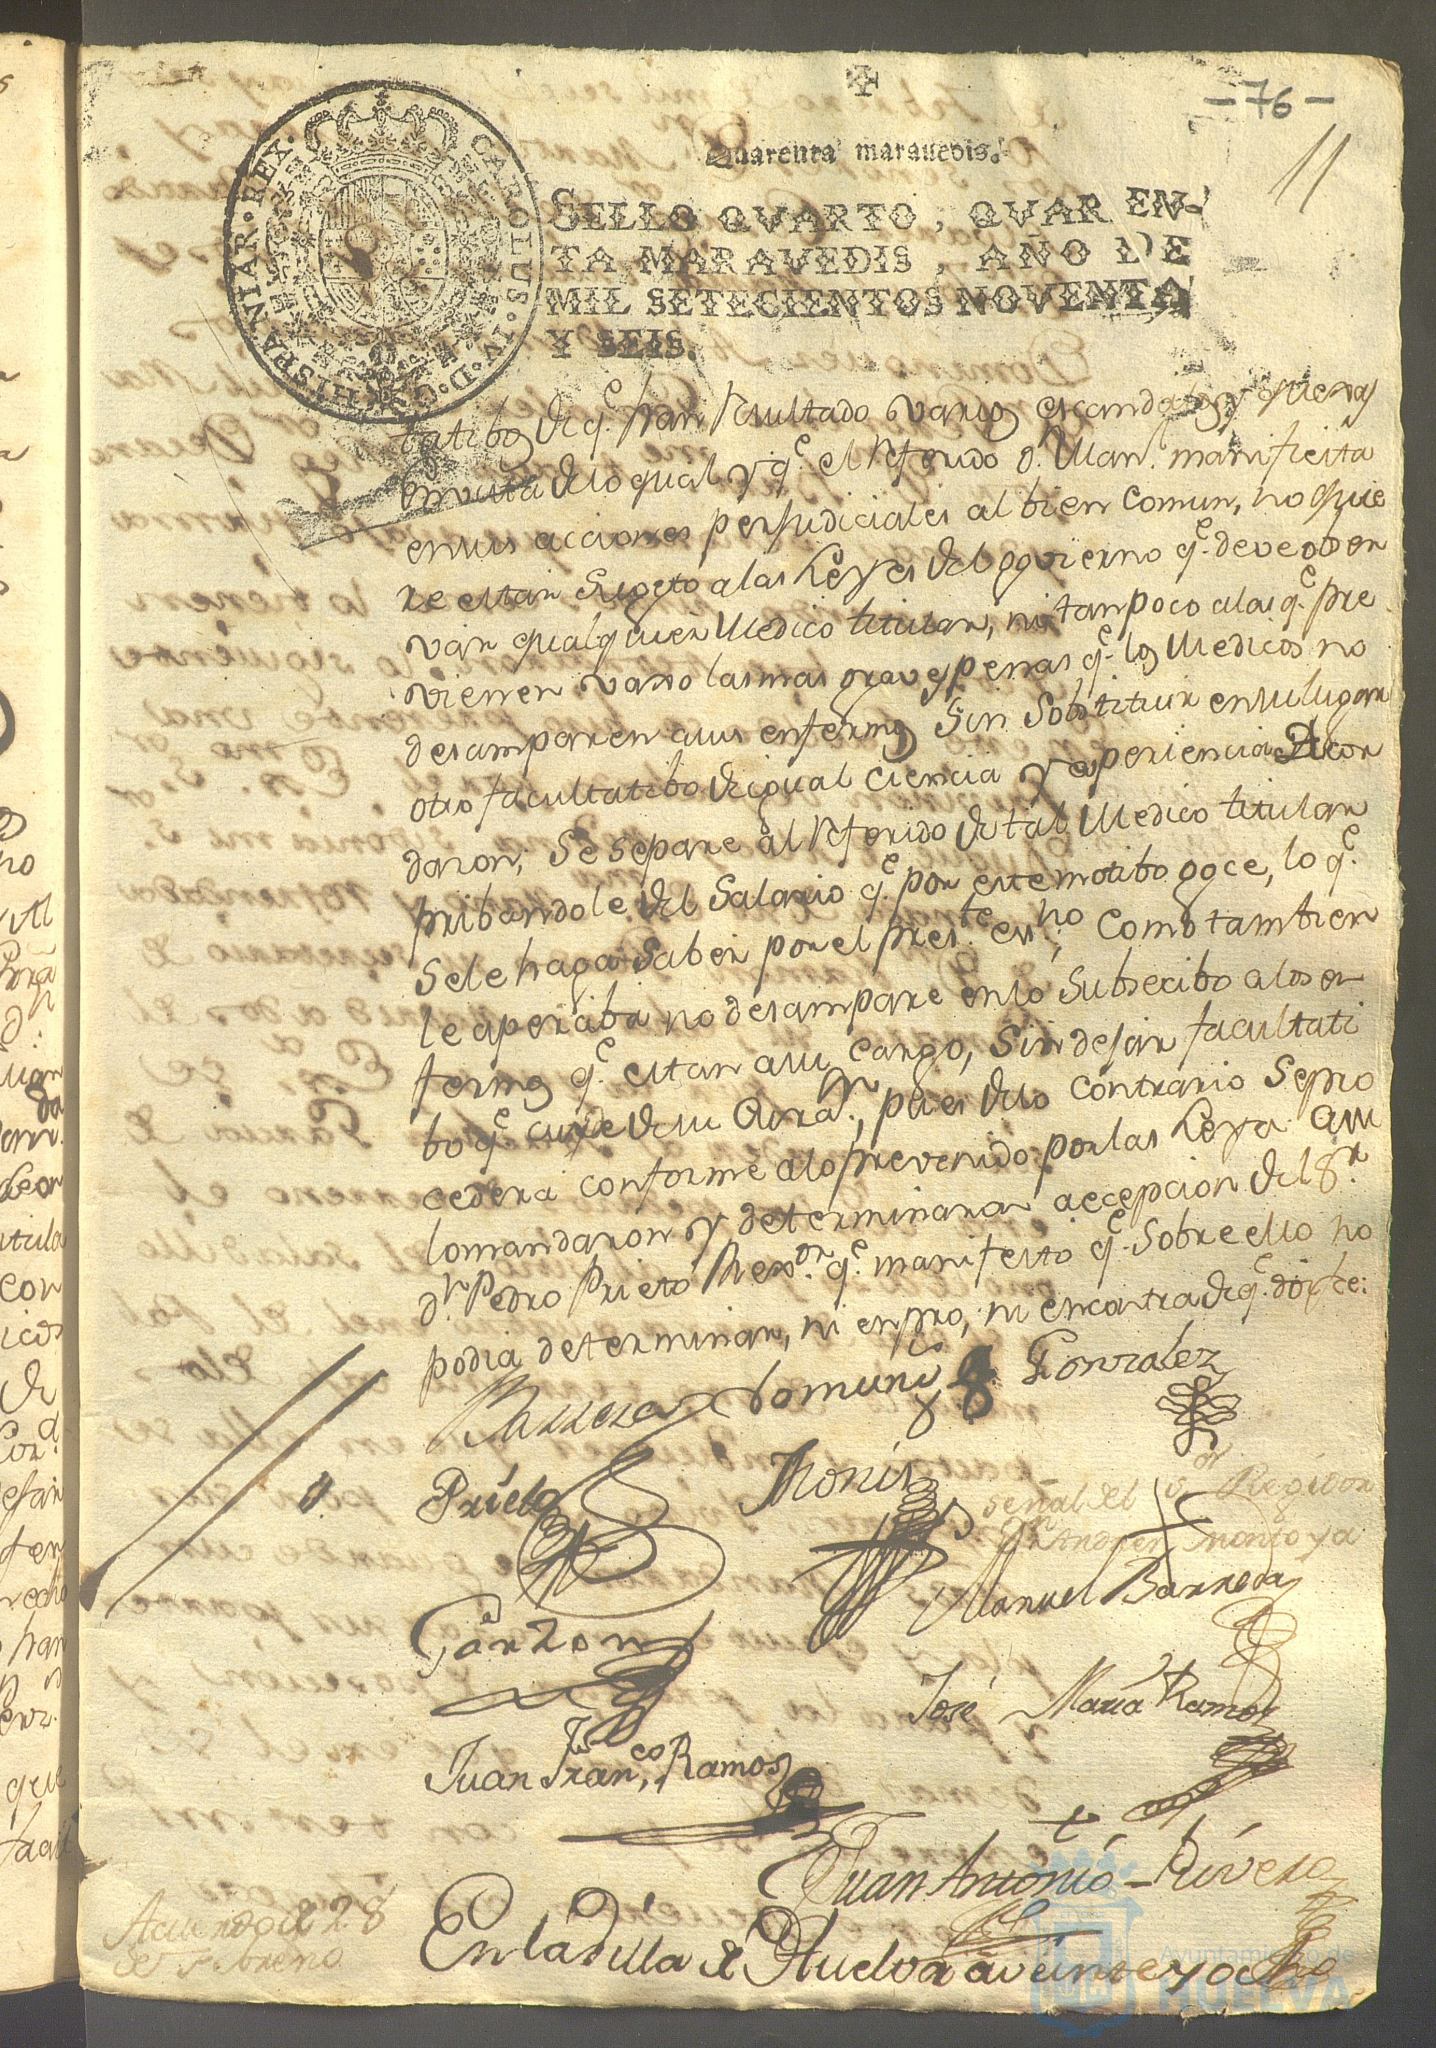 -76-
11
Quarenta marauedis.
SELLO QVARTO, QVAREN-
TA MARAVEDIS, AÑO DE
MIL SETECIENTOS NOVENTA
Y SEIS.
CAROLUS IV D G HISPANIAR REX
tatibos de q.e han Resultado varios escandalos y quexas
en vista de lo qual y q.e el Referido D. Man.l manifiesta
en sus acciones perjudiciales al bien Comun, no quie
re estar sugeto a las Leyes del govierno q.e deve obser
var qualquier Medico titular, ni tampoco a las q.e pre
vienen vaxo las mas graves penas q.e los Medicos no
desamparen a sus enfermos sin Substituir en su lugar
otro facultatibo de igual Ciencia y experiencia Acor
daron; Se separe al Referido de tal Medico titular
pribandole del Salario q.e por este motibo goce, lo q.e
se le haga saber por el pres.te es.no; Como tambien
le aperciba no desampare en lo Subsecibo a los en
fermos q.e estan a su cargo, sin dejar facultati
bo q.e cuyde de su Cura.n, pues de lo contrario se pro
cedera conforme a lo prevenido por las Leyes. Asi
lo mandaron y determinaron a ecepcion del S.r
D.n Pedro Prieto Rex.or q.e manifesto q.e sobre ello no
podia determinar, ni en pro, ni en contra de q.e doy fe:
Gonzalez
Prieto
Monis
Señal del S.or Regidor
D.n Andres Montoya
Manuel Barreda
Garzon
José María Ramos
Juan Fran.co Ramos
Juan Antonio Rivera
Acuerdo de 28
de Febrero
En la Villa de Huelva a veinte y ocho
Ayuntamiento de
HUELVA